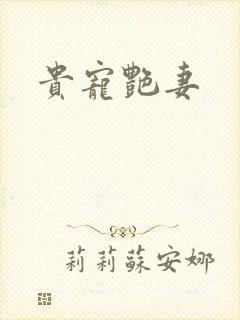 貴寵艷妻
莉莉蘇安娜